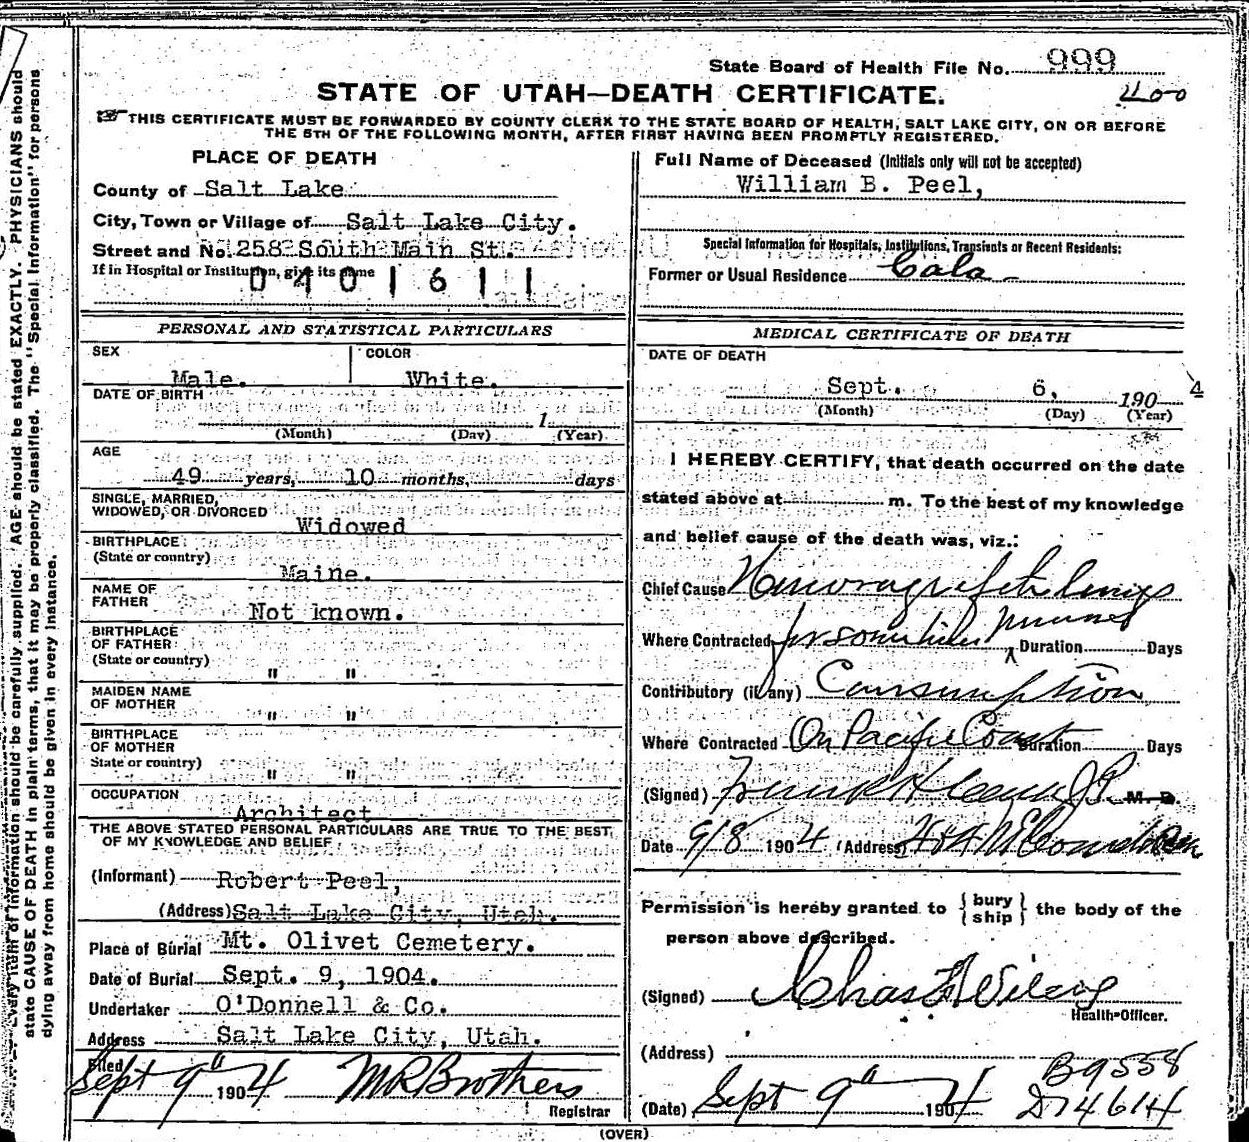 State Board of Health File No. 999
STATE OF UTAH—DEATH CERTIFICATE.
400
THIS CERTIFICATE MUST BE FORWARDED BY COUNTY CLERK TO THE STATE BOARD OF HEALTH, SALT LAKE CITY, ON OR BEFORE
THE 5TH OF THE FOLLOWING MONTH, AFTER FIRST HAVING BEEN PROMPTLY REGISTERED.
PLACE OF DEATH
County of Salt Lake
City, Town or Village of Salt Lake City.
Street and No. 258 South Main St.
If in Hospital or Institution, give its name
0401611
PERSONAL AND STATISTICAL PARTICULARS
SEX Male.
COLOR White.
DATE OF BIRTH
1
(Month) (Day) (Year)
AGE
49 years, 10 months, days
SINGLE, MARRIED,
WIDOWED, OR DIVORCED Widowed
BIRTHPLACE
(State or country) Maine.
NAME OF
FATHER Not known.
BIRTHPLACE
OF FATHER
(State or country) " "
MAIDEN NAME
OF MOTHER " "
BIRTHPLACE
OF MOTHER
State or country) " "
OCCUPATION Architect
THE ABOVE STATED PERSONAL PARTICULARS ARE TRUE TO THE BEST
OF MY KNOWLEDGE AND BELIEF
(Informant) Robert Peel,
(Address) Salt Lake City, Utah.
Place of Burial Mt. Olivet Cemetery.
Date of Burial Sept. 9, 1904.
Undertaker O'Donnell & Co.
Address Salt Lake City, Utah.
Filed
Sept 9" 1904 M R Brothers
Registrar
Full Name of Deceased (Initials only will not be accepted)
William B. Peel,
Special Information for Hospitals, Institutions, Transients or Recent Residents:
Former or Usual Residence Cala
MEDICAL CERTIFICATE OF DEATH
DATE OF DEATH
Sept. 6, 1904
(Month) (Day) (Year)
I HEREBY CERTIFY, that death occurred on the date
stated above at m. To the best of my knowledge
and belief cause of the death was, viz.:
Chief Cause lungs
Where Contracted Duration Days
Contributory (if any) Consumption
Where Contracted On Pacific Coast Duration Days
(Signed) Frank H M. D.
Date 9/8 1904 (Address)
Permission is hereby granted to { bury ship } the body of the
person above described.
(Signed) Chas
Health Officer.
(Address)
B9558
(Date) Sept 9" 1904 D74614
(OVER)
Every item of information should be carefully supplied. AGE should be stated EXACTLY. PHYSICIANS should
state CAUSE OF DEATH in plain terms, that it may be properly classified. The "Special Information" for persons
dying away from home should be given in every instance.